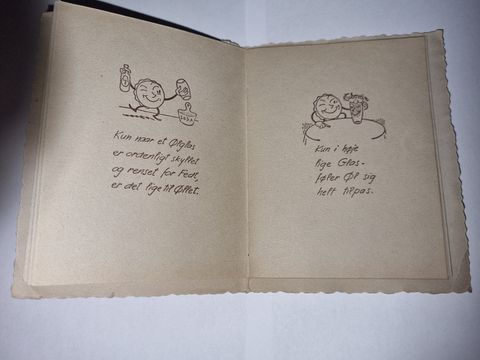 Kun naar et Ølglas
er ordenligt skyllet
og renset for Fedt,
er det lige til Øllet.
Kun i høje
lige Glas-
føler Øl sig
helt tilpas.